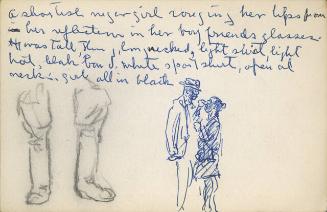 a shortish negro girl rouging her lips from
her reflection in her boy friends glasses.
He was tall thin, long necked, light shirt, light
hat, black band. white sport shirt, open at
neck. girl all in black